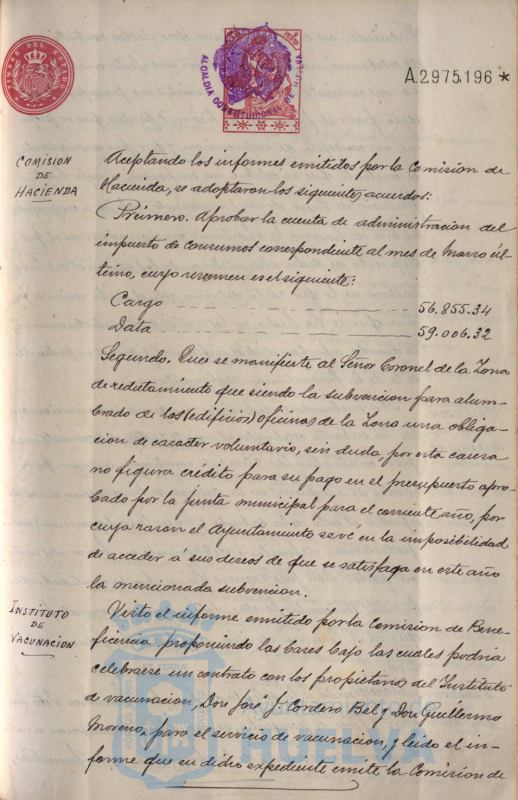 TIMBRE DEL ESTADO
ALCALDIA CONSTITUCIONAL DE
A.2975.196 *
COMISION
DE
HACIENDA
Aceptando los informes emitidos por la Comision de
Hacienda, se adoptaron los siguientes acuerdos:
Primero. Aprobar la cuenta de administracion del
impuesto de consumos correspondiente al mes de Marzo úl-
timo, cuyo resumen es el siguiente:
Cargo 56.855.34
Data 59.006.32
Segundo. Que se manifieste al Señor Coronel de la Zona
de reclutamiento que siendo la subvencion para alum-
brado de los (edificios) oficinas de la Zona una obliga-
cion de caracter voluntario, sin duda, por esta causa
no figura crédito para su pago en el presupuesto apro-
bado por la Junta municipal para el corriente año, por
cuya razon el Ayuntamiento se vé en la imposibilidad
de acceder á sus deseos de que se satisfaga en este año
la mencionada subvencion.
INSTITUTO
DE
VACUNACION
Visto el informe emitido por la Comision de Bene-
ficencia proponiendo las bases bajo las cuales podria
celebrarse un contrato con los propietarios del Instituto
de vacunacion, Don José J. Cordero Bel y Don Guillermo
Moreno, para el servicio de vacunacion, y leido el in-
forme que en dicho expediente emite la Comision de
HUELVA